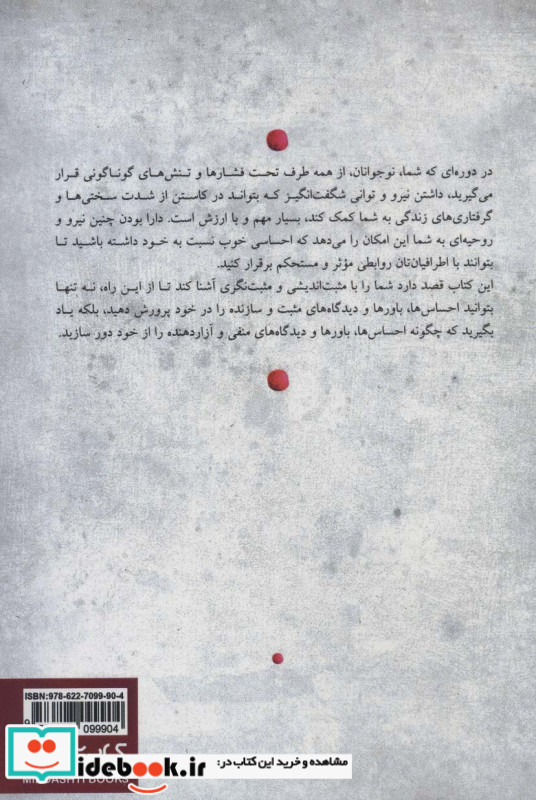 در دوره‌ای که شما، نوجوانان، از همه طرف تحت فشارها و تنش‌های گوناگونی قرار
می‌گیرید، داشتن نیرو و توانی شگفت‌انگیز که بتواند در کاستن از شدت سختی‌ها و
گرفتاری‌های زندگی به شما کمک کند، بسیار مهم و با ارزش است. دارا بودن چنین نیرو و
روحیه‌ای به شما این امکان را می‌دهد که احساسی خوب نسبت به خود داشته باشید تا
بتوانند با اطرافیان‌تان روابطی مؤثر و مستحکم برقرار کنید.
این کتاب قصد دارد شما را با مثبت‌اندیشی و مثبت‌نگری آشنا کند تا از این راه، نه تنها
بتوانید احساس‌ها، باورها و دیدگاه‌های مثبت و سازنده را در خود پرورش دهید، بلکه یاد
بگیرید که چگونه احساس‌ها، باورها و دیدگاه‌های منفی و آزاردهنده را از خود دور سازید.
ISBN: 978-622-7099-90-4
9
099904
BOOKS
idebook.ir
مشاهده و خرید این کتاب در: